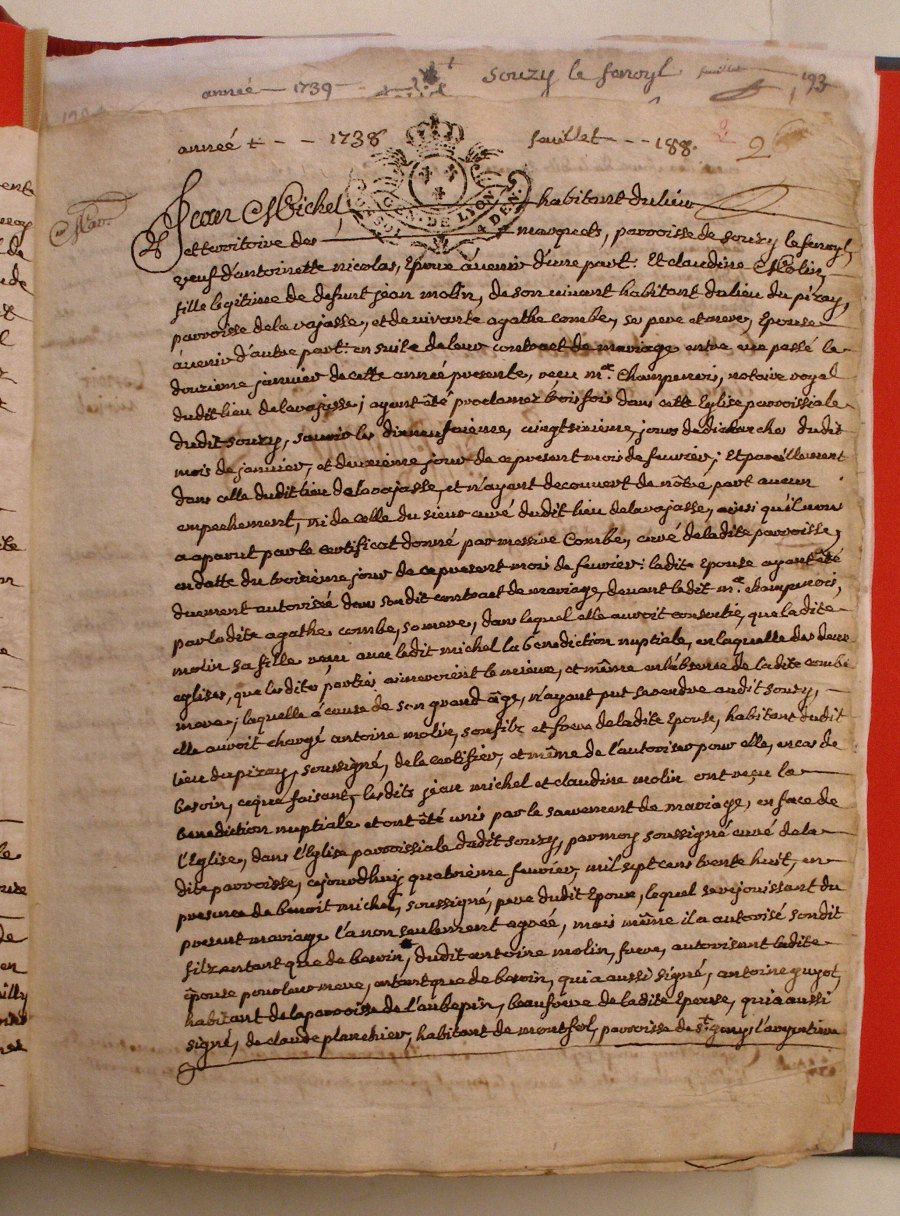 année 1739 Souzy le fenoyl feuillet 193
année + - - 1738 feuillet - - 188 2 26
Mar.
GN. DE LYON
Jean Michel habitant du lieu
et territoire des marquets, parroisse de souzy le fenoyl,
veuf d'antoinette nicolas, Epoux àvenir d'une part: Et claudine Molin,
fille legitime de defunt jean molin, de son vivant habitant du lieu du pizay,
parroisse de la vajasse, et de vivante agathe combe, ses pere et mere, Epouse
àvenir d'autre part: en suite de leur contract de mariage entre eux passé le
douzieme janvier de cette année presente, reçu me. Champurois, notaire royal
dudit lieu de lavajasse; ayant êté proclamez trois fois dans cette Eglise parroissiale
dudit souzy, savoir les dixneufvieme, vingtsixieme, jours de dimanches dudit
mois de janvier, et deuxieme jour de ce present mois de fevrier; Et pareillement
dans celle dudit lieu de lavajasse, et n'ayant decouvert de nôtre part aucun
empechement, ni de celle du sieur curé dudit lieu de lavajasse, ainsi qu'il nous
a aparut par le certificat donné par messire Combe, curé de ladite parroisse,
en datte du troisieme jour de ce present mois de fevrier: ladite Epouse ayant êté
duement autorisée dans son dit contract de mariage, devant ledit me. champurois,
par ladite agathe combe, sa mere, dans lequel elle auroit consentie, que ladite
molin sa fille reçu avec ledit michel la benediction nuptiale, en laquelle des deux
eglises, que lesdites parties aimeroient le mieux, et même en l'absence de ladite combe
mere; laquelle à cause de son grand âge, n'ayant put se rendre audit souzy,
elle auroit chargé antoine molin, son fils et frere de ladite Epouse, habitant dudit
lieu du pizay, soussigné, de le certifier, et même de l'autoriser pour elle, en cas de
besoin, ce que faisant, lesdits jean michel et claudine molin ont reçu la
benediction nuptiale et ont êté unis par le sacrement de mariage, en face de
l'Eglise, dans l'Eglise parroissiale dudit souzy, par moy soussigné curé de la
dite parroisse, cejourdhuy quatrieme fevrier, mil sept cens trente huit, en
presence de benoit michel, soussigné, pere dudit Epoux, lequel se rejouissant du
present mariage l'a non seulement agreé, mais même il a autorisé son dit
fils entant que de besoin, dudit antoine molin, frere, autorisant ladite
épouse pour leur mere, entant que de besoin, qui a aussi signé, antoine guyot,
habitant de la parroisse de l'aubepin, beaufrere de ladite Epouse, qui a aussi
signé, de claude planchier, habitant de montfol, parroisse de st. genys l'argentiere